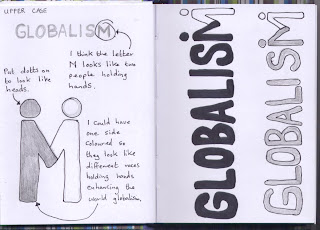 UPPER CASE
GLOBALISM
I think the letter
M looks like two
people holding
hands.
Put dotts on
to look like
heads.
I could have
one side
coloured so
they look like
different races
holding hands
enhancing the
world globalism.
GLOBALISM
GLOBALISM